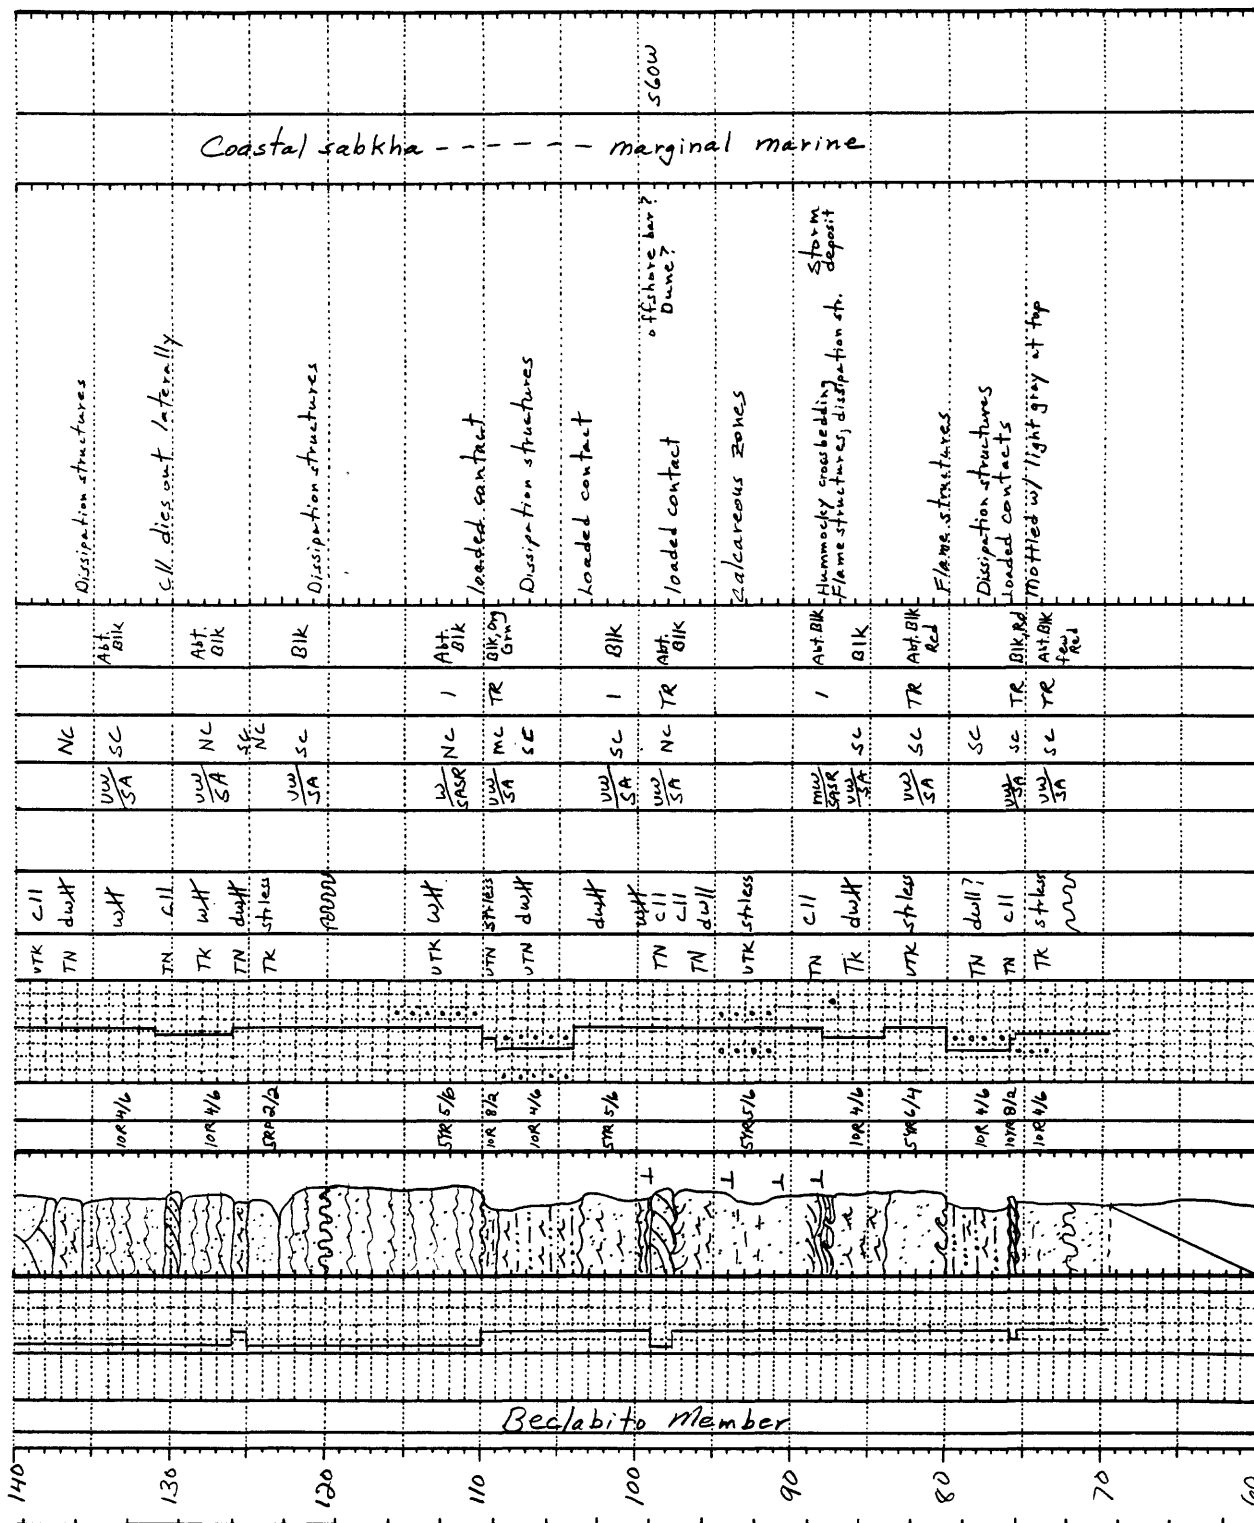 S60W
Coastal sabkha - - - - - - - marginal marine
Dissipation structures
Cll dies out laterally
Dissipation structures
loaded contact
Dissipation structures
Loaded contact
offshore bar?
Dune?
loaded contact
Calcareous zones
Storm
deposit
Hummocky crossbedding
Flame structures, dissipation str.
Flame structures
Dissipation structures
loaded contacts
Mottled w/ light gray at top
Abt. Blk
Abt. Blk
Blk
Abt. Blk
Blk, Org Grn
Blk
Abt. Blk
Abt. Blk
Blk
Abt. Blk Red
Blk, Rd
Abt. Blk few Red
1 TR 1 TR 1 TR TR TR
NC SC NC SC NC SC NC MC SC SC NC SC SC SC SC SC
VW/SA VW/SA VW/SA W/SASR VW/SA VW/SA VW/SA MW/SASR VW/SA VW/SA VW/SA VW/SA
cll dwtt wtt cll wtt dwtt strless wtt strless dwtt dwtt wtt cll cll dwll strless cll dwtt strless dwll? cll strless
VTK TN TN TK TN TK VTK VTN VTN TN TN VTK TN TK VTK TN TN TK
10R 4/6
10R 4/6
5RP 2/2
5YR 5/6
10R 8/2
10R 4/6
5YR 5/6
5YR 5/6
10R 4/6
5YR 6/4
10R 4/6
10YR 8/2
10R 4/6
Beclabito Member
140 130 120 110 100 90 80 70 60